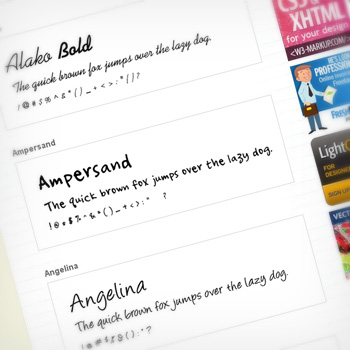 Alako Bold
The quick brown fox jumps over the lazy dog.
!@#$%^&*()_+<>:"{}?
Ampersand
Ampersand
The quick brown fox jumps over the lazy dog.
!@#$%^&*()_+<>:" ?
Angelina
Angelina
The quick brown fox jumps over the lazy dog.
CSS
XHTML
for your design
<W3-MARKUP.COM/>
PROFESSION
Light
FOR
DESIGNER
SIGN UP